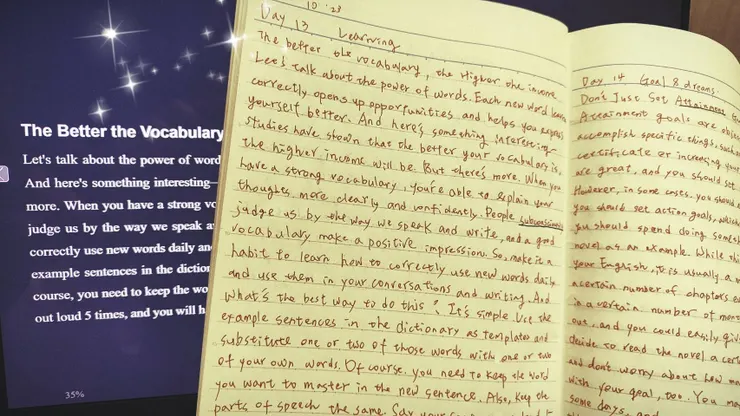 The Better the Vocabulary
Let's talk about the power of word
And here's something interesting—
more. When you have a strong vo
judge us by the way we speak a
correctly use new words daily an
example sentences in the diction
course, you need to keep the wo
out loud 5 times, and you will h
35%
10.23
Day 13 Learning
The better the vocabulary, the Higher the income
Let's talk about the power of words. Each new word learn
correctly opens up opportunities and helps you express
yourself better. And here's something interesting-
studies have shown that the better your vocabulary is,
the higher income will be. But there's more. When you
have a strong vocabulary, you're able to explain your
thoughts more clearly and confidently. People subconsciously
judge us by the way we speak and write, and a good
vocabulary make a positive impression. So, make it a
habit to learn how to correctly use new words daily
and use them in your conversations and writing. And
what's the best way to do this? It's simple. Use the
example sentences in the dictionary as templates and
substitute one or two of those words with one or two
of your own words. Of course, you need to keep the word
you want to master in the new sentence. Also, keep the
parts of speech the same. Say your
Day 14 Goal & dreams
Don't Just Set Attainment
Attainment goals are objec
accomplish specific things, such
certificate or increasing your
are great, and you should set
However, in some cases, you should
you should set action goals, which
you should spend doing someth
novel as an example. While thi
your English, it is usually a
a certain number of chapters
in a certain number of mont
out, and you could easily giv
decide to read the novel a cert
and don't worry about how man
with your goal, too. You may
some days, and